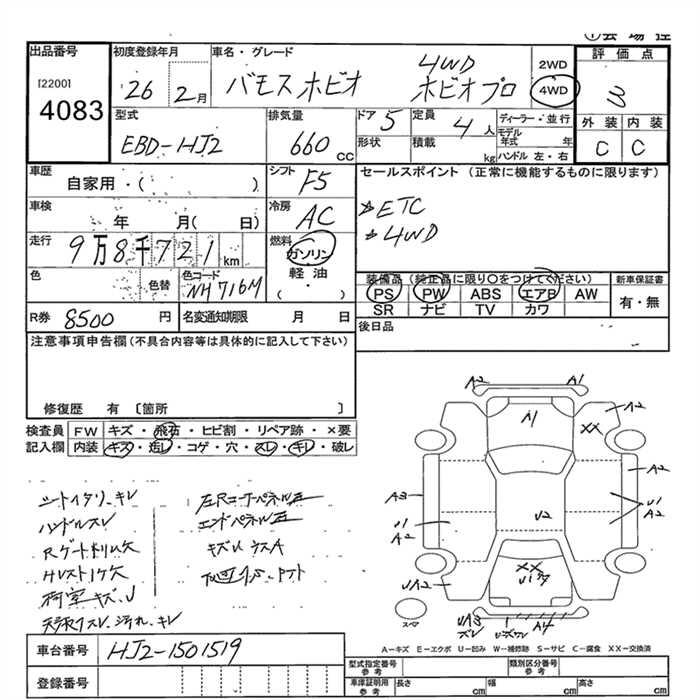 出品番号
[2200]
4083
初度登録年月
26 2月
車名・グレード
バモスホビオ
4WD
ホビオプロ
2WD
4WD
評価点
3
外装 内装
C C
型式
EBD-HJ2
排気量
660 CC
ドア 5
形状
定員 4人
積載 kg
ディーラー・並行
モデル
年式 年
ハンドル 左・右
車歴
自家用・( )
シフト F5
セールスポイント (正常に機能するものに限ります)
☆ETC
☆4WD
車検
年 月( 日)
冷房 AC
走行
9万8千721km
燃料
ガソリン
軽油
( ・ )
色
色替
色コード
NH716M
装備品 (純正品に限り〇をつけてください)
PS PW ABS エアB AW
SR ナビ TV カワ
新車保証書
有・無
R券 8500 円
名変通知期限 月 日
後日品
注意事項申告欄(不具合内容等は具体的に記入して下さい)
修復歴 有 〔箇所 〕
検査員
記入欄
FW キズ・飛石・ヒビ割・リペア跡・×要
内装 キズ・汚レ・コゲ・穴・スレ・キレ・破レ
ハンドルスレ
A2 A1
A1
A2
XX
A2
A3
U1
A2
U1
A2
U2
XX
UA2
UA3
A4
A-キズ E-エクボ U-凹み W-補修跡 S-サビ C-腐食 XX-交換済
車台番号 HJ2-1501519
登録番号
型式指定番号
参考
類別区分番号
参考
車庫証明用
参考
長さ cm
幅 cm
高さ cm